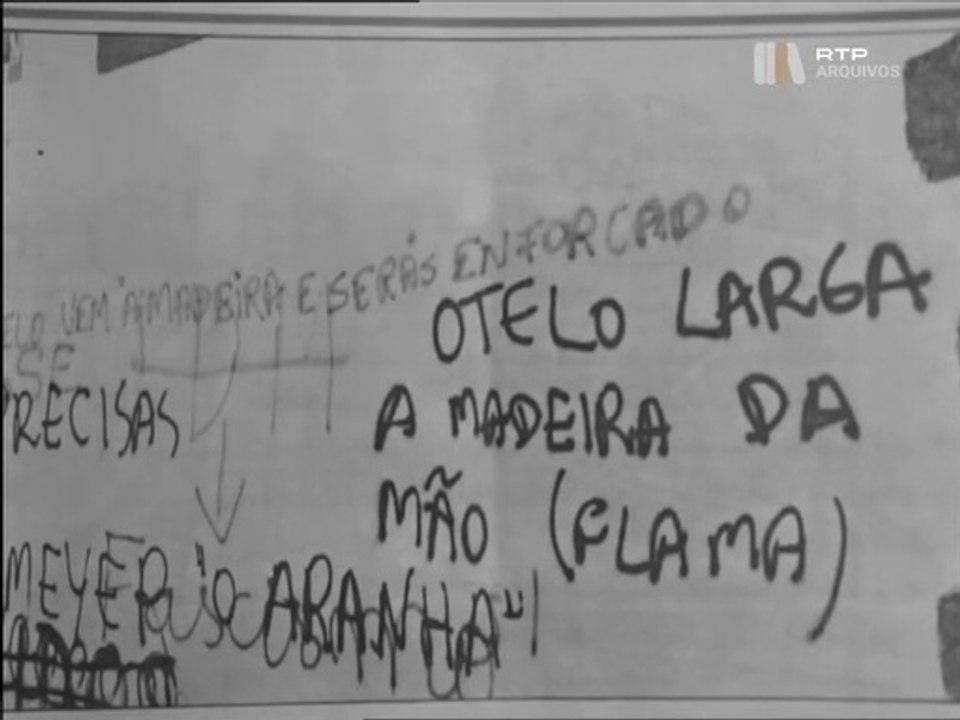 RTP
ARQUIVOS
VEM À MADEIRA E SERÁS ENFORCADO
OTELO LARGA
A MADEIRA DA
MÃO (FLAMA)
SE
PRECISAS
MEYER "O ARANHA"